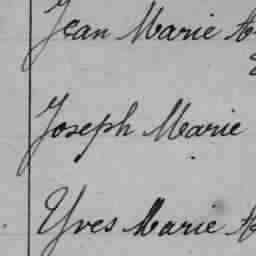 Jean Marie
Joseph Marie
Yves Marie